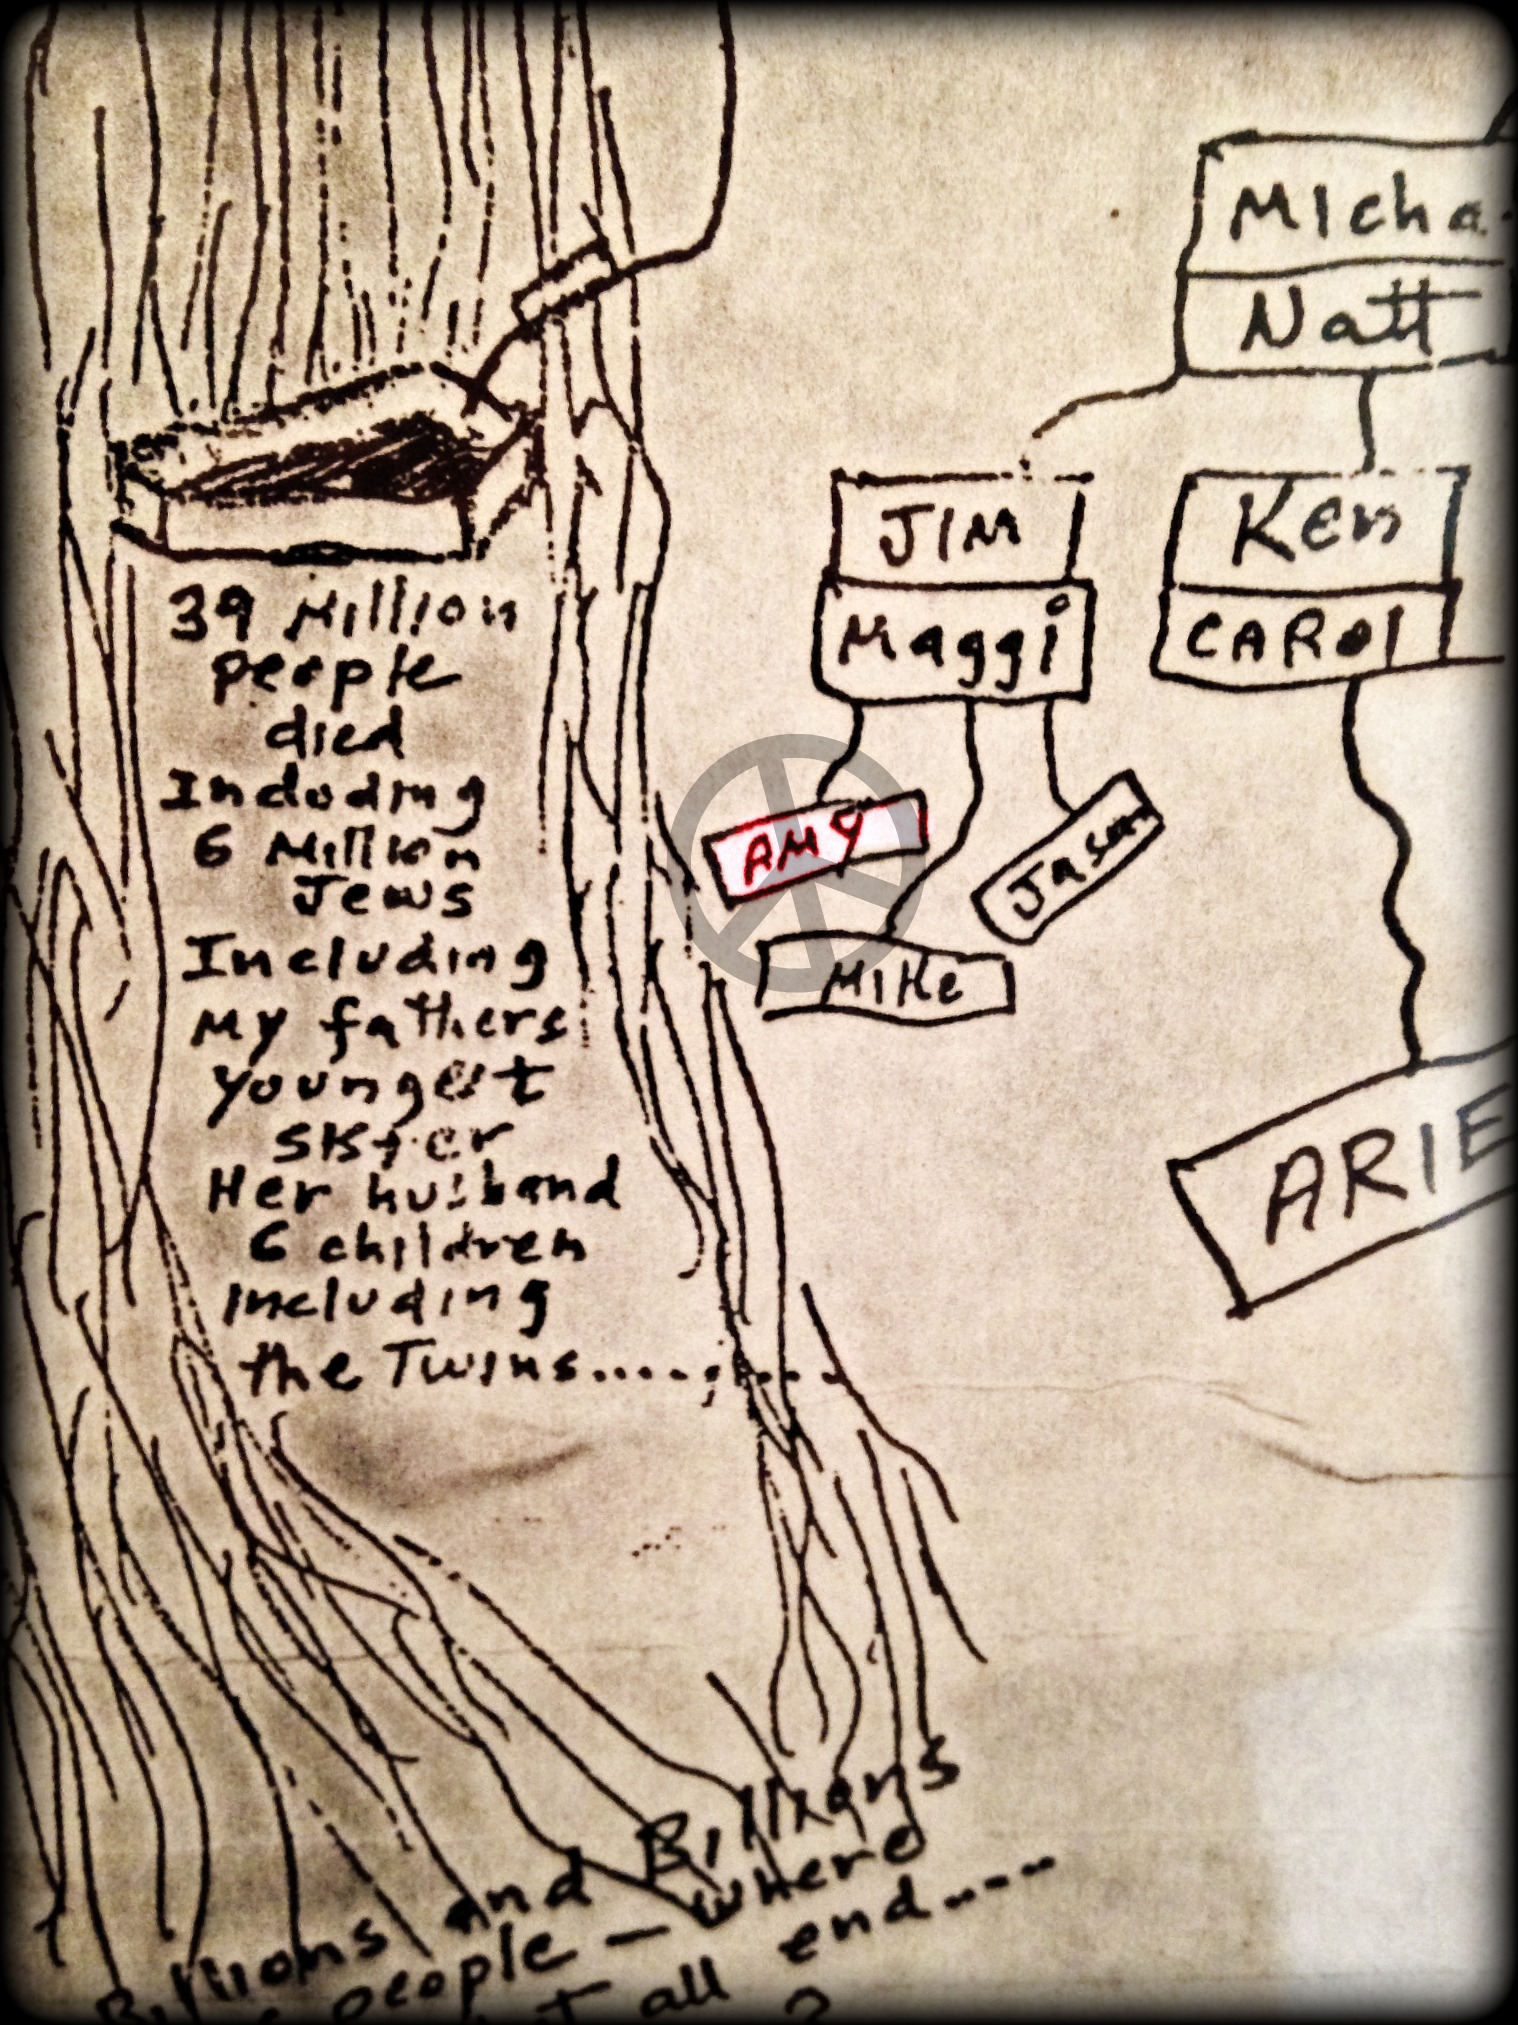 39 Million
people
died
Incloding
6 Million
Jews
Including
My fathers
youngest
sister
Her husband
6 children
including
the Twins..........
Billions and Billions
people — where
it all end....
?
Micha
Natt
JIM
Maggi
Ken
CAROl
AMY
Jason
MIKe
ARIE